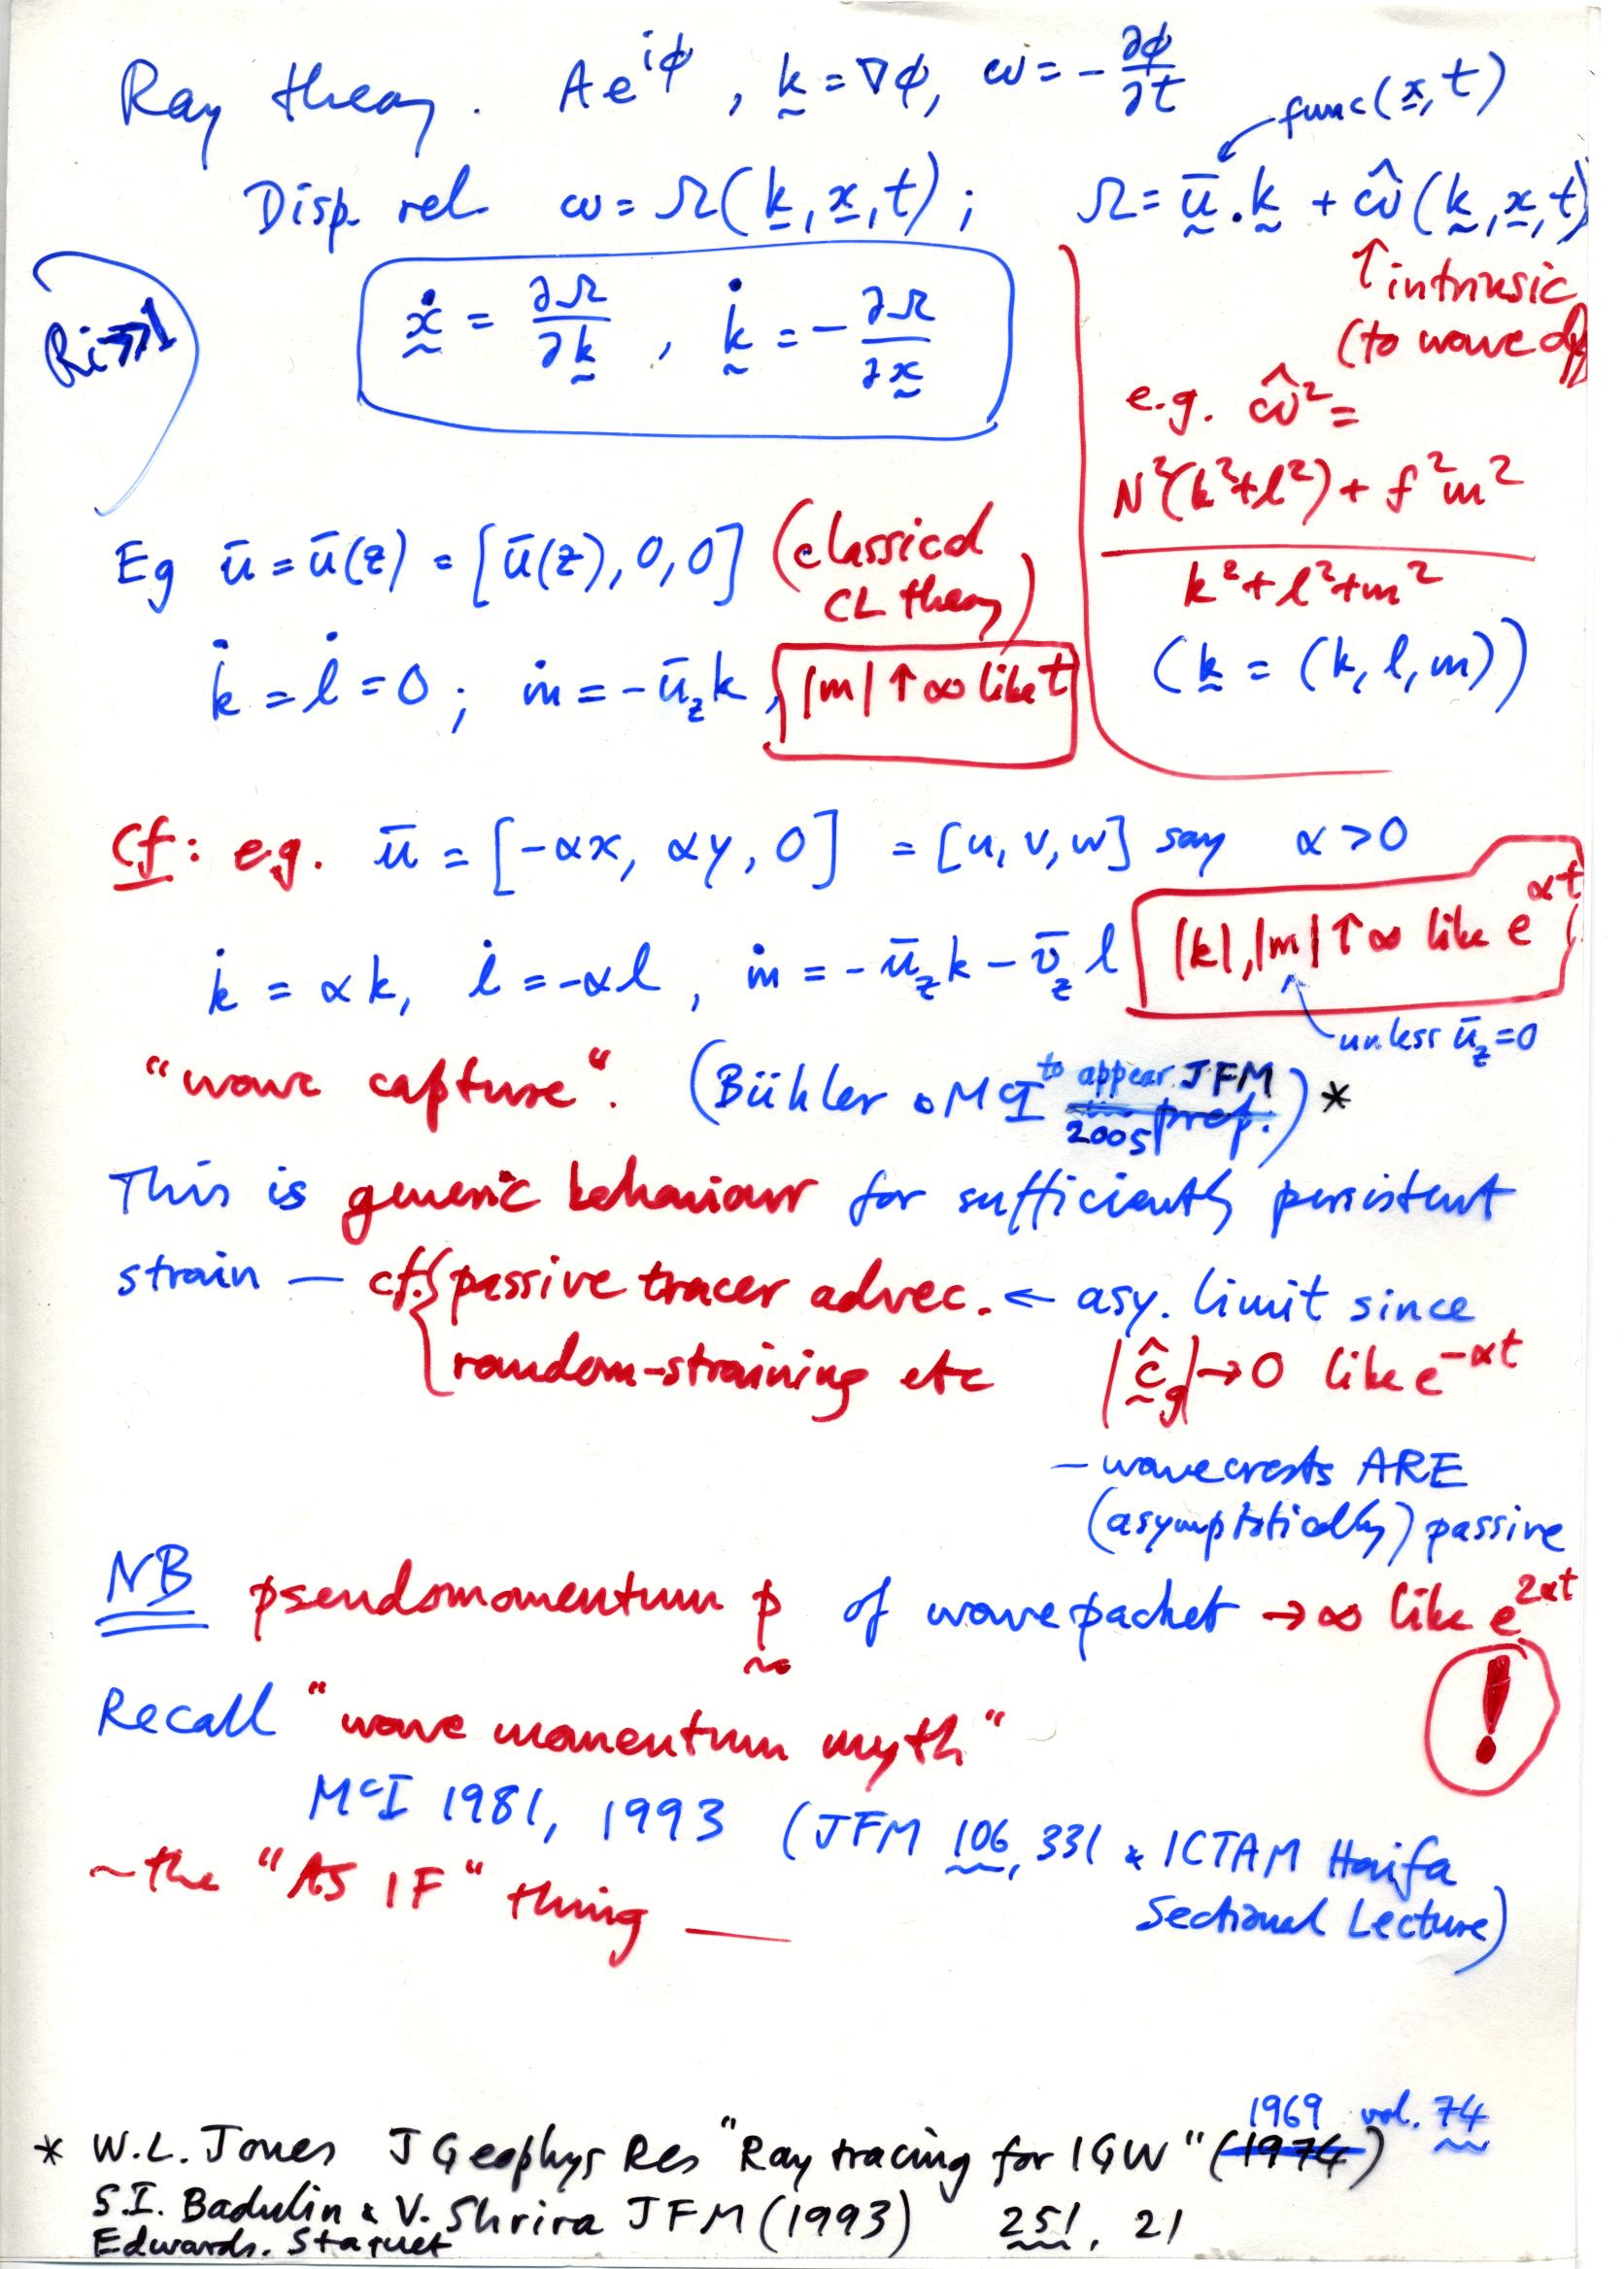 Ray theory. Ae^{iϕ}, k̰ = ∇ϕ, ω = -∂ϕ/∂t
func(x̰, t)
Disp. rel. ω = Ω(k̰, x̰, t); Ω = ṵ̄.k̰ + ω̂(k̰, x̰, t)
↑ intrinsic
(to wave dy
Ri≫1
ẋ̰ = ∂Ω/∂k̰, k̰̇ = -∂Ω/∂x̰
e.g. ω̂² =
N²(k²+l²) + f²m²
k²+l²+m²
(k̰ = (k, l, m))
Eg ū = ū(z) = [ū(z), 0, 0] (classical
CL theory)
k̇ = l̇ = 0; ṁ = -ū_z k, |m| ↑ ∞ like t
Cf: e.g. ū = [-αx, αy, 0] = [u, v, w] say α > 0
k̇ = αk, l̇ = -αl, ṁ = -ū_z k - v̄_z l |k|, |m| ↑ ∞ like e^{αt}
unless ū_z = 0
"wave capture". (Bühler & McI to appear JFM 2005 prep.) *
This is generic behaviour for sufficiently persistent
strain — cf. { passive tracer advec. ← asy. limit since
random-straining etc |ĉ̰_g| → 0 like e^{-αt}
– wavecrests ARE
(asymptotically) passive
NB pseudomomentum p̰ of wavepacket → ∞ like e^{2αt}
!
Recall "wave momentum myth"
McI 1981, 1993 (JFM 106, 331 & ICTAM Haifa
Sectional Lecture)
~the "AS IF" thing —
* W.L. Jones J Geophys Res "Ray tracing for IGW" (1974) 1969 vol. 74
S.I. Badulin & V. Shrira JFM (1993) 251, 21
Edwards. Staquet